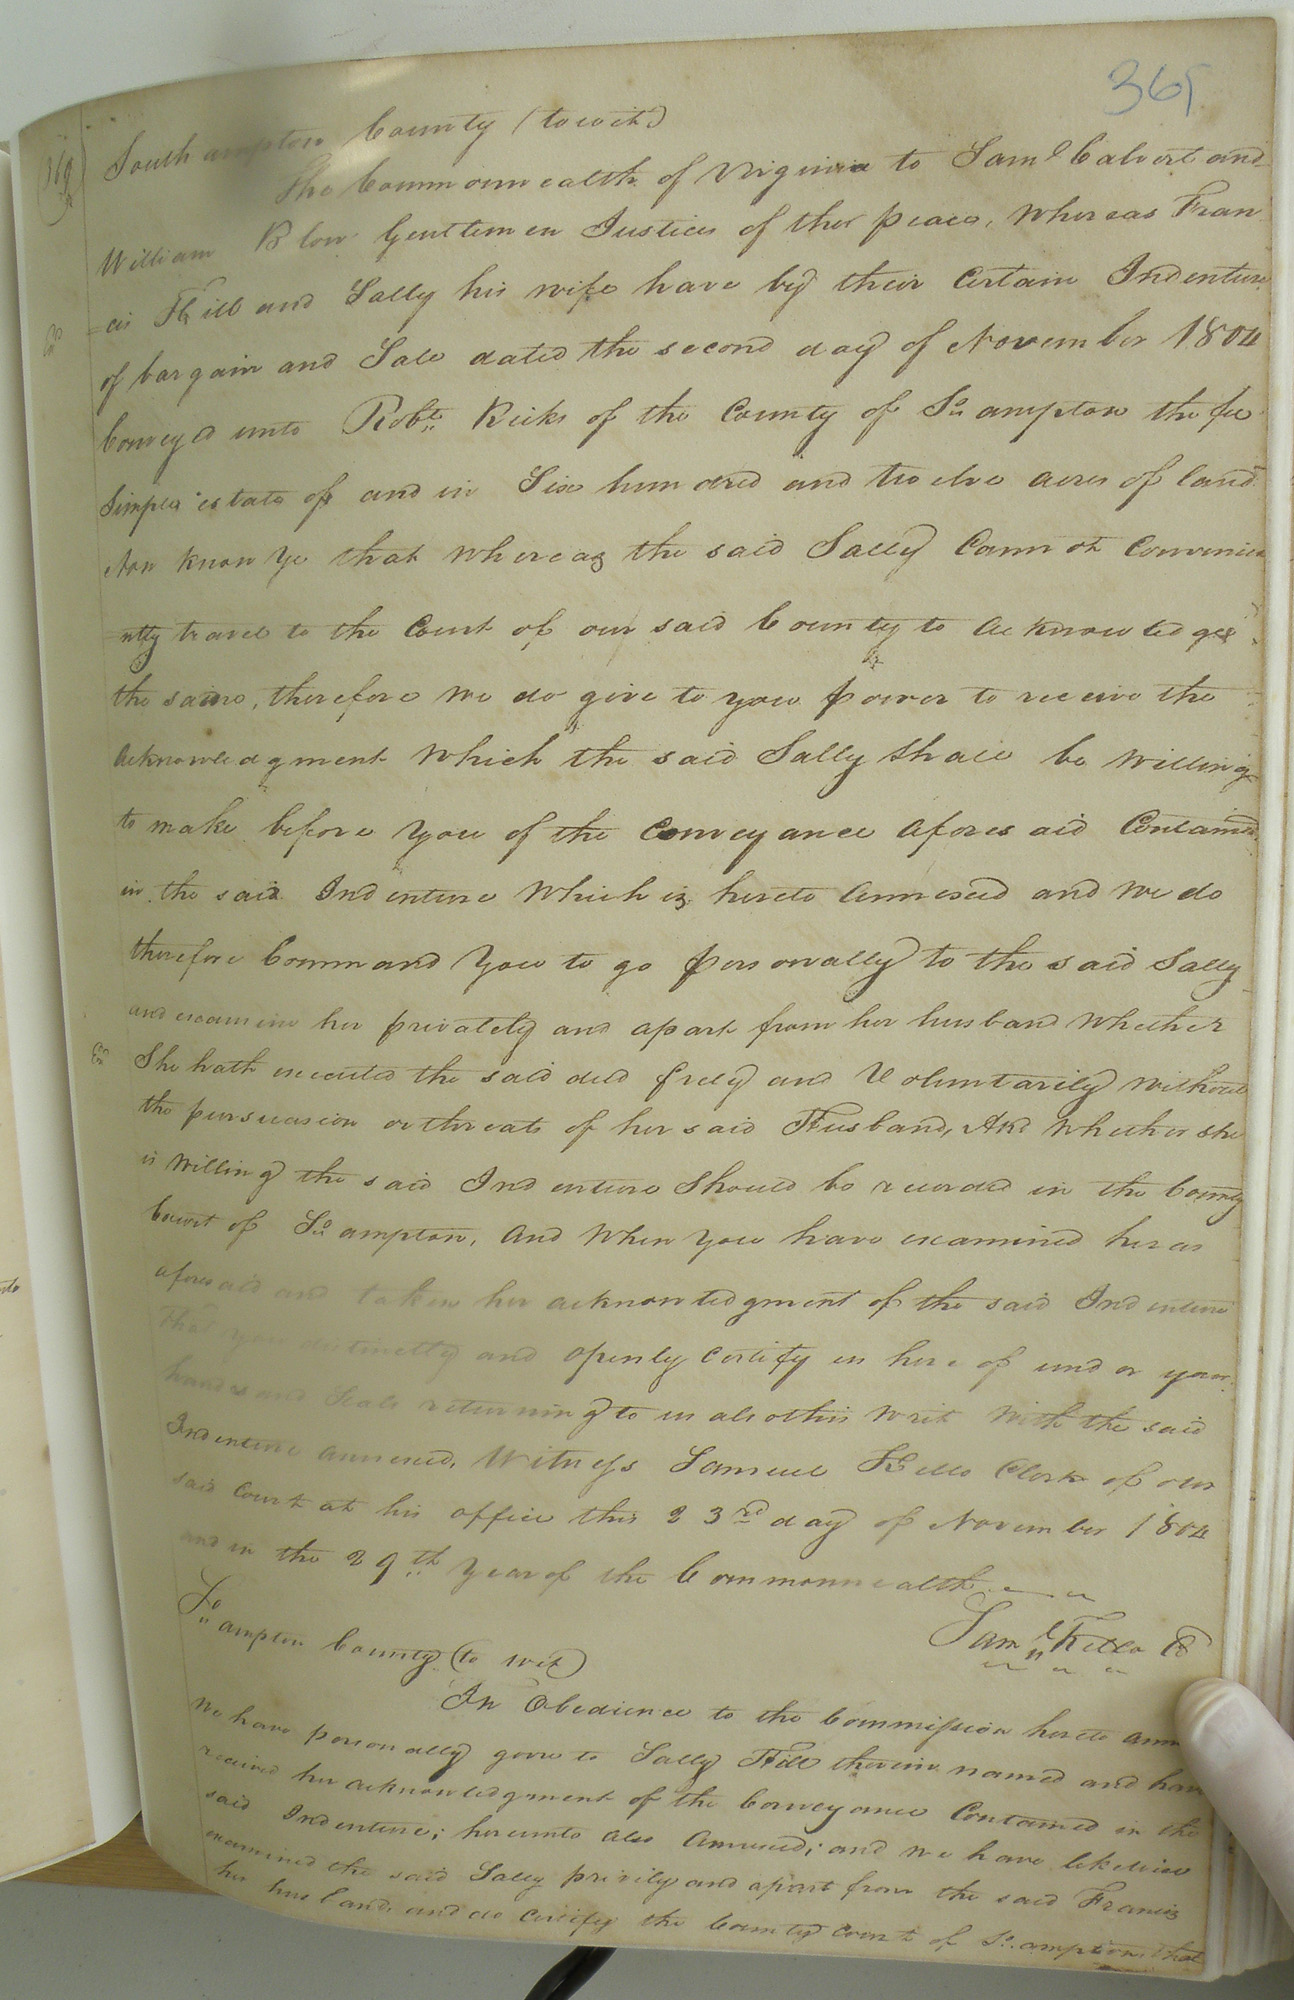 365
369
Southampton County (towit)
The Commonwealth of Virginia to Saml Calvert and
William Blow Gentlemen Justices of the peace, Whereas Fran
=cis Hill and Sally his wife have by their Certain Indenture
of bargain and Sale dated the second day of November 1804
Conveyed unto Robt. Ricks of the County of So.ampton the fee
Simple estate of and in Six hundred and twelve acres of land
Now Know Ye that Whereas the said Sally Cannot Convenie
ntly travel to the Court of our said County to acknowledge
the same, therefore We do give to you power to receive the
Acknowledgment Which the said Sally Shall be Willing
to make before You of the Conveyance aforesaid Contained
in the said Indenture Which is hereto annexed and We do
therefore Command You to go personally to the said Sally
and examine her privately and apart from her husband Whether
She hath executed the said deed freely and Voluntarily Without
the persuasion or threats of her said Husband, And Whether she
is Willing the said Indenture Should be recorded in the County
Court of So.ampton, and When you have examined her as
aforesaid and taken her acknowledgment of the said Indenture
That you distinctly and openly Certify us here of under your
hands and Seals returning to us also this Writ With the said
Indenture annexed. Witness Samuel Kello Clerk of our
said Court at his office this 23rd day of November 1804
and in the 29th Year of the Commonwealth
Saml Kello
So.ampton County (to wit)
In Obedience to the Commission hereto ann
We have personally gone to Sally Hill therein named and have
received her acknowledgment of the Conveyance Contained in the
said Indenture; hereunto also annexed; and we have likewise
examined the said Sally privily and apart from the said Francis
her husband, and do certify the County Court of So.ampton, that